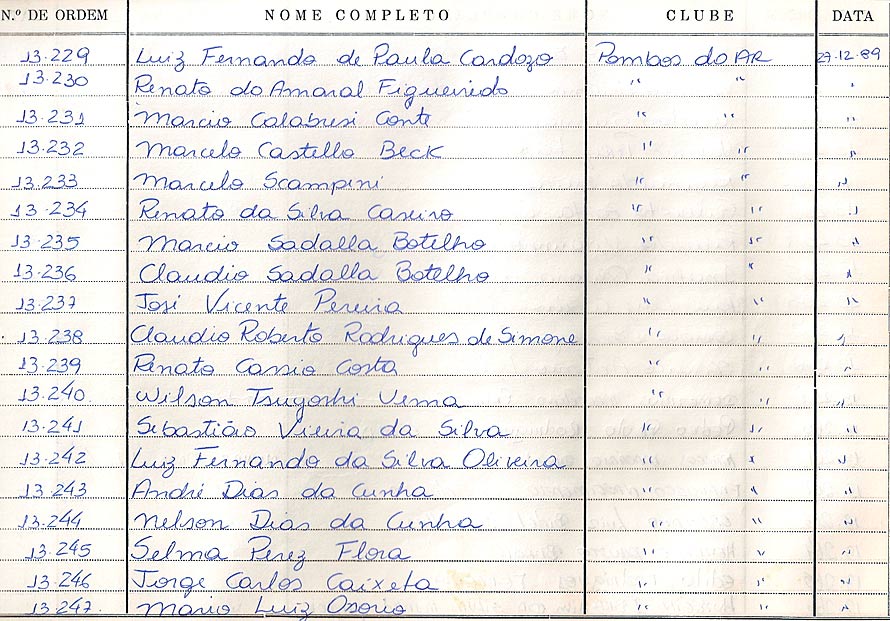 N.º DE ORDEM NOME COMPLETO CLUBE DATA
13.229 Luiz Fernando de Paula Cardozo Pombos do AR 27.12.89
13.230 Renato do Amaral Figueiredo " " "
13.231 Marcio Calabresi Conte " " "
13.232 Marcelo Castello Beck " " "
13.233 Marcelo Scampini " " "
13.234 Renato da Silva Caseiro " " "
13.235 Marcio Sadalla Botelho " " "
13.236 Claudio Sadalla Botelho " " "
13.237 José Vicente Pereira " " "
13.238 Claudio Roberto Rodrigues de Simone " " "
13.239 Renato Cassio Costa " " "
13.240 Wilson Tsuyoshi Uema " " "
13.241 Sebastião Vieira da Silva " " "
13.242 Luiz Fernando da Silva Oliveira " " "
13.243 André Dias da Cunha " " "
13.244 Nelson Dias da Cunha " " "
13.245 Selma Perez Flora " " "
13.246 Jorge Carlos Caixeta " " "
13.247. Mario Luiz Osorio " " "